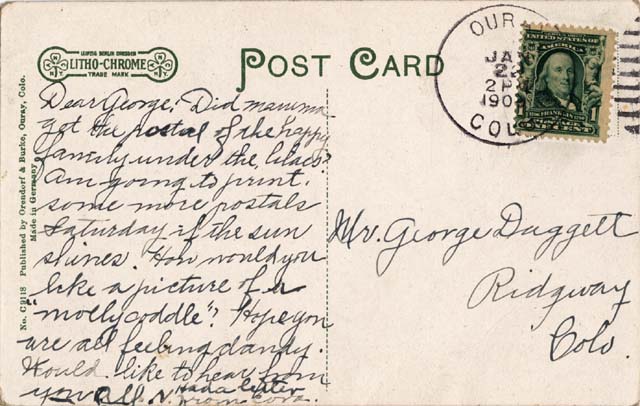 LEIPZIG BERLIN DRESDEN
LITHO-CHROME
N. Y.
N. Y.
TRADE MARK
POST CARD
OUR
JA
2
2 P
190
COL
UNITED STATES OF
AMERICA
1
ONE CENT
No. C9118 Published by Orendorf & Burke, Ouray, Colo.
Made in Germany
Dear George: Did mamma
get the postal of the happy
family under the lilacs?
Am going to print
some more postals
Saturday if the sun
shines. How would you
like a picture of a
"mollycoddle"? Hope you
are all feeling dandy.
Would like to hear from
you all. Had a letter
from Cora.
Mr. George Duggett
Ridgway
Colo.